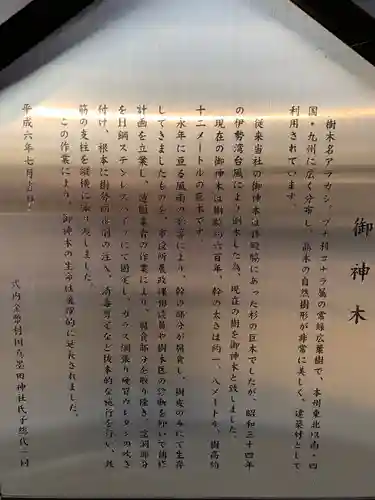 御神木
樹木名アラカシ、ブナ科コナラ属の常緑広葉樹で、本州東北以南・四
国・九州に広く分布し、高木の自然樹形が非常に美しく、建築材として
利用されています。
従来当社の御神木は拝殿脇にあった杉の巨木でしたが、昭和三十四年
の伊勢湾台風により倒木した為、現在の樹を御神木と致しました。
現在の御神木は樹齢約六百年、幹の太さは約一、八メートル、樹高約
十二メートルの巨木です。
永年に亘る風雨の影響により、幹の部分が腐食し、樹皮のみにて生存
してきましたものを、市役所農政課樹木医の診断を仰いで補修
計画を立案し、造園業者の作業により、腐食部分を取り除き、空洞部分
をステンレスワイヤにて固定し、ガラス網張り硬質ウレタンの吹き
付け、根本に樹勢剤の注入、消毒剪定など抜本的な施行を行い、鉄
筋の支柱を縦横に添え致しました。
この作業により、御神木の生命は飛躍的に延長されました。
平成六年七月吉日
式内 真墨田神社氏子総代一同